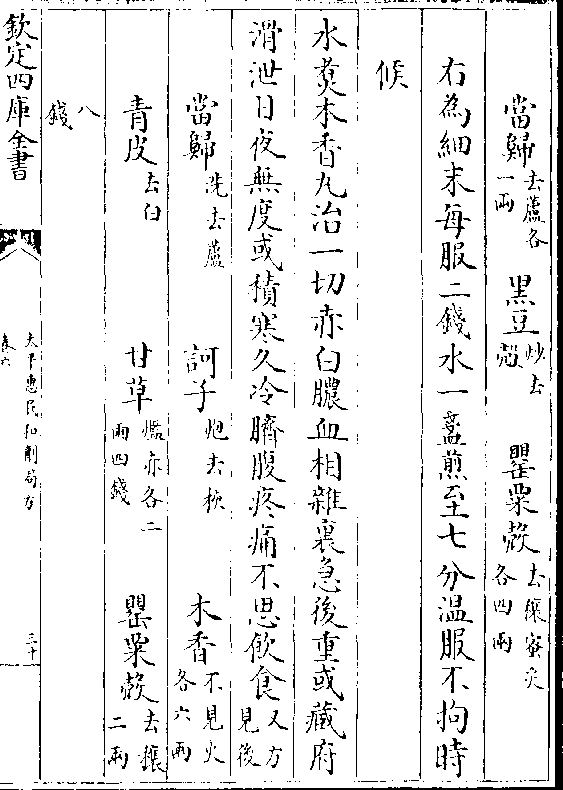 當歸去蘆各一兩 黑豆炒去殼 罌粟殻去穰蜜炙各四兩
右為細末每服二錢水一盞煎至七分温服不拘時
候
水煑木香丸治一切赤白膿血相雜裏急後重或藏府
滑泄日夜無度或積寒久冷臍腹疼痛不思飲食又方見後
當歸洗去蘆 訶子炮去核 木香不見火各六兩
青皮去白 甘草爁赤各二兩四錢 罌粟殻去穰二兩
八錢
欽定四庫全書
太平惠民和劑局方
卷六
三十